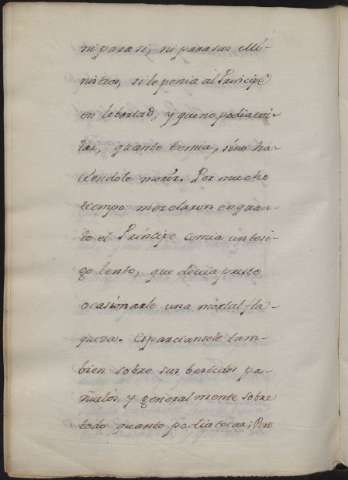 ni para si, ni para sus Mi-
nistros, si lo ponia al Principe
en libertad, y que no podia evi-
tar, quanto temia, sino ha-
ciendole morir. Por mucho
tiempo mezclaron en quan-
to el Principe comia un tosi-
go lento, que devia presto
ocasionarle una mortal fla-
queza. Esparciansele tam-
bien sobre sus vestidos, pa-
ñuelos, y generalmente sobre
todo quanto podia tocar; Pero